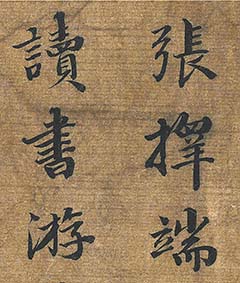 張擇端
讀書游